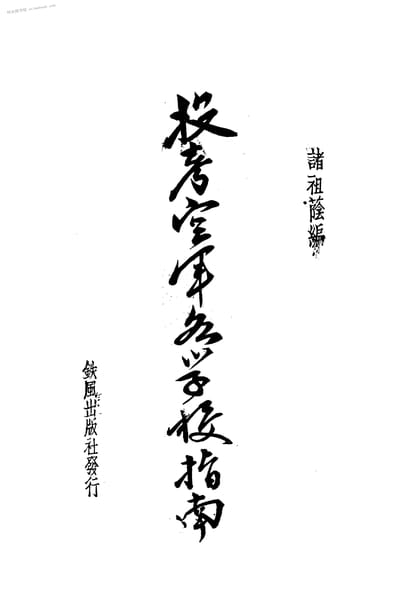 諸祖蔭編
投考空軍各學校指南
鉄風出版社發行